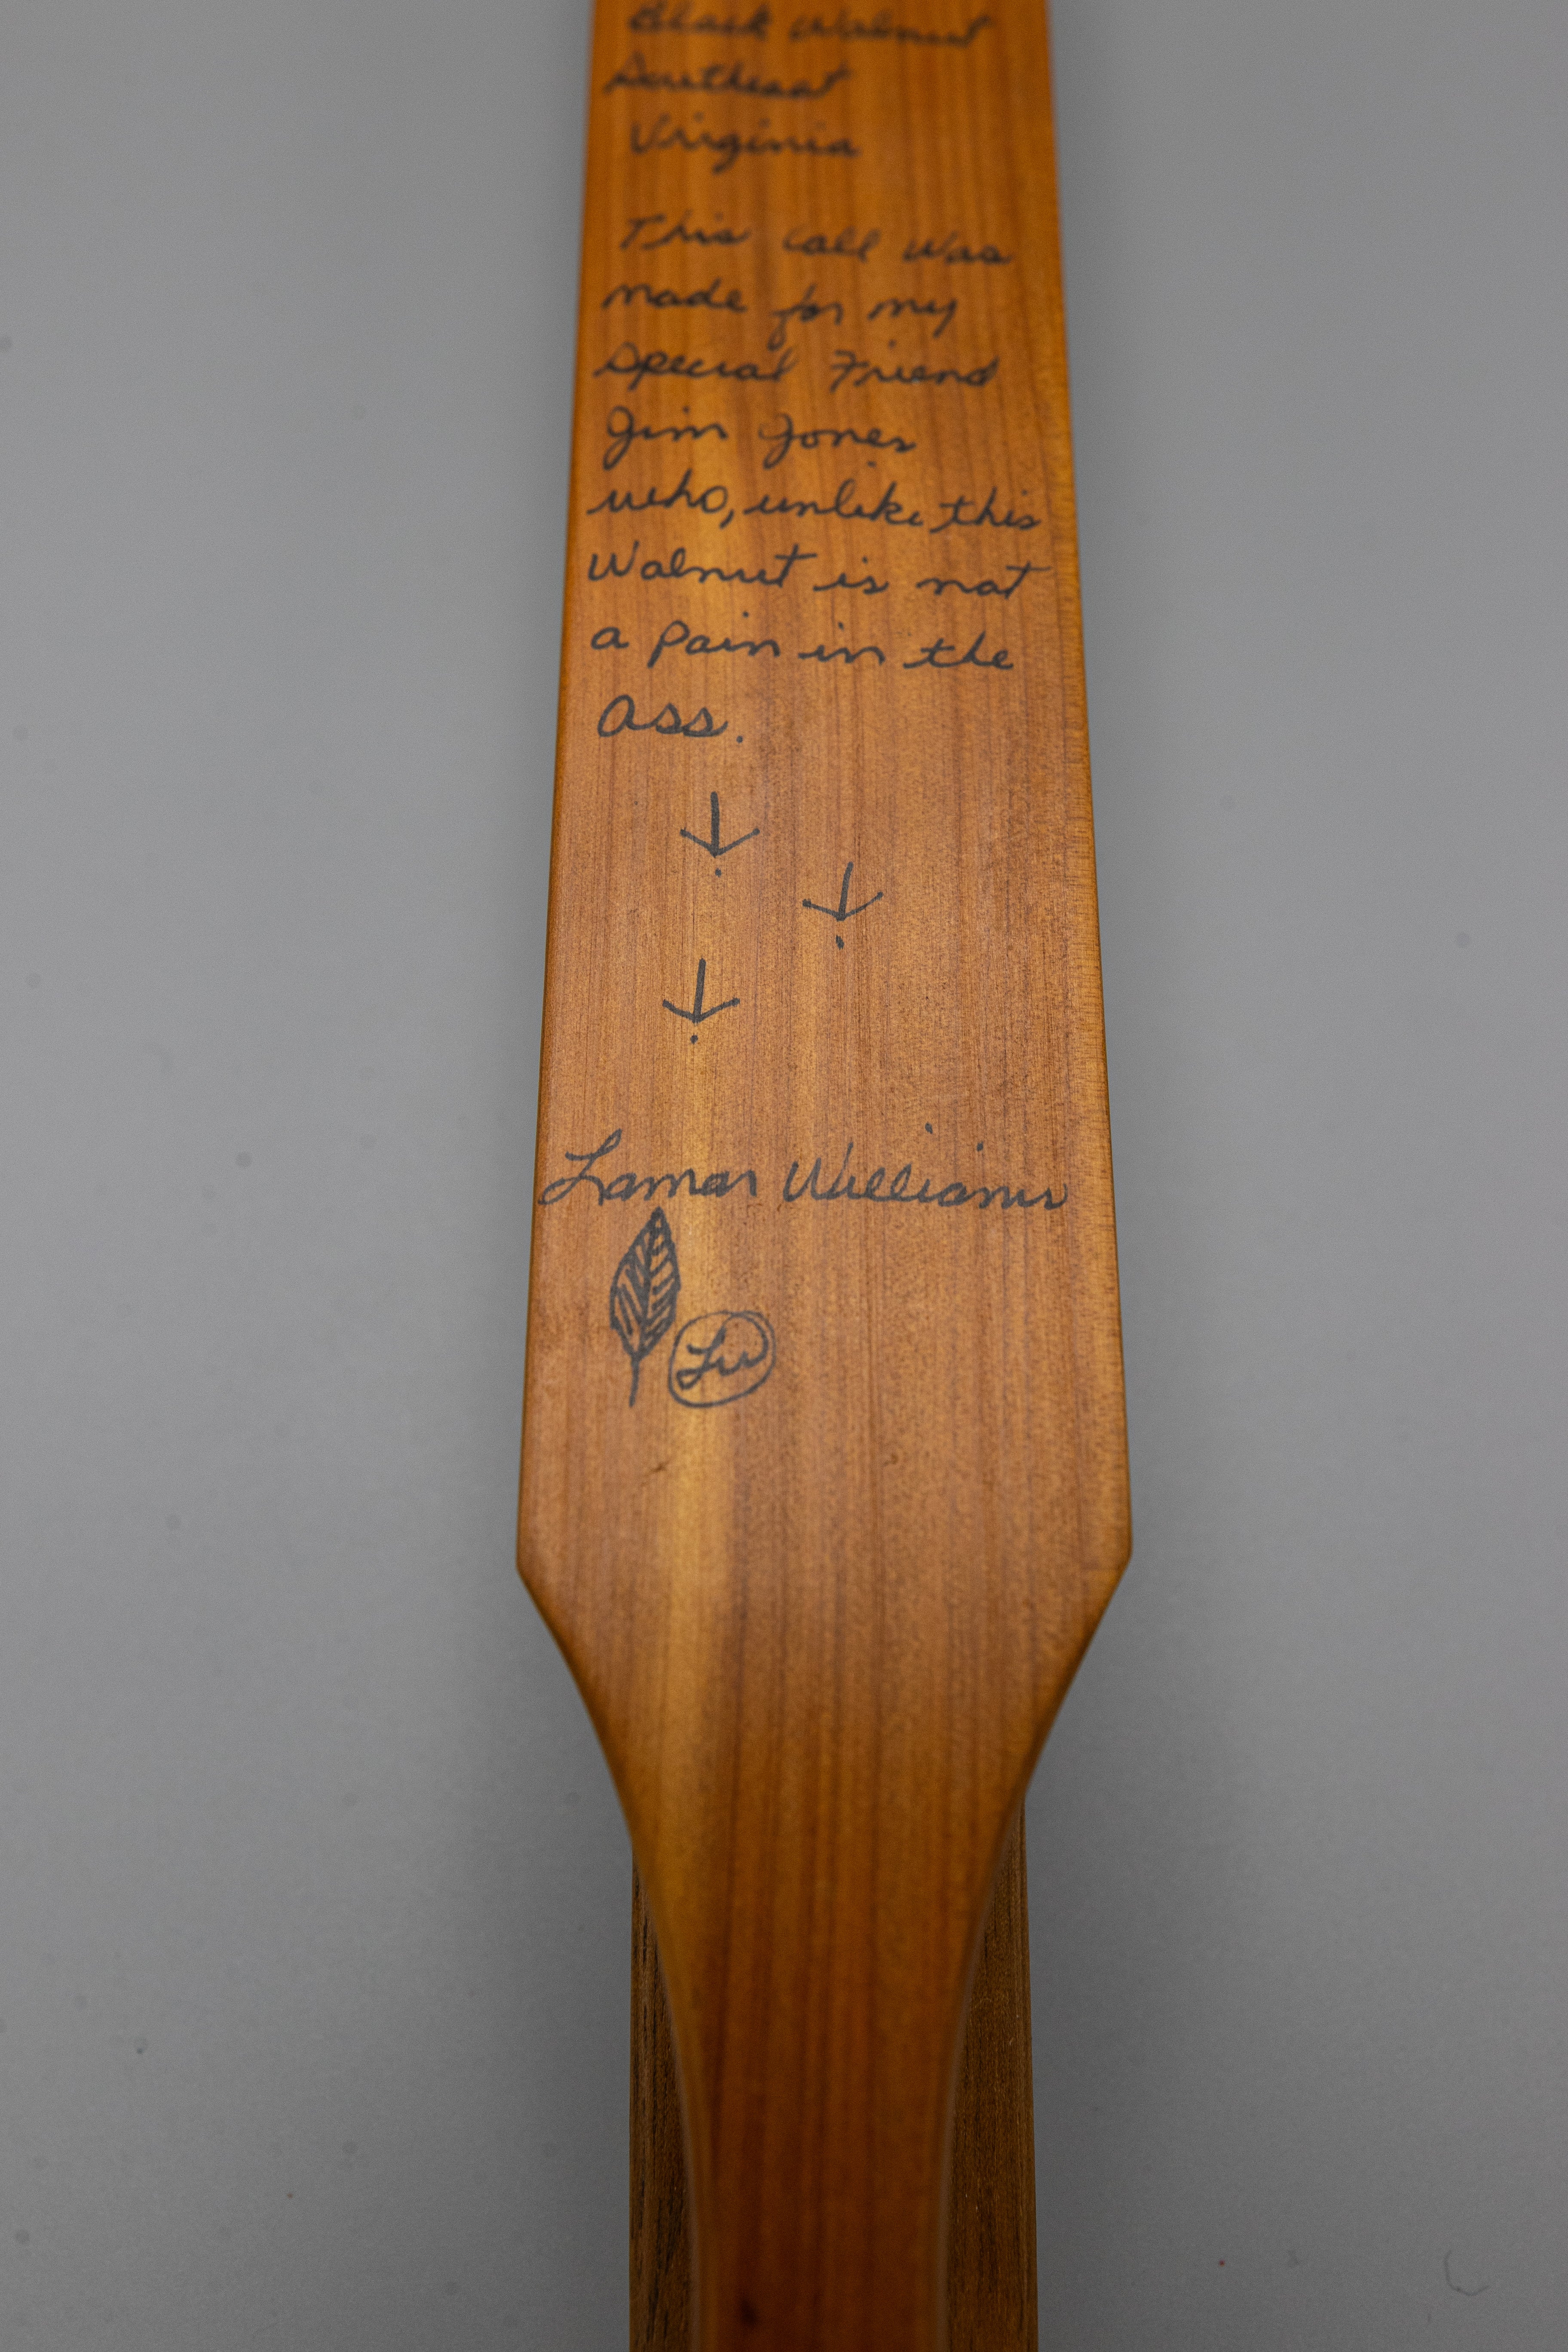 Black Walnut
Southeast
Virginia
This call was
made for my
special Friend
Jim Jones
who, unlike this
Walnut is not
a pain in the
ass.
Lamar Williams
LW